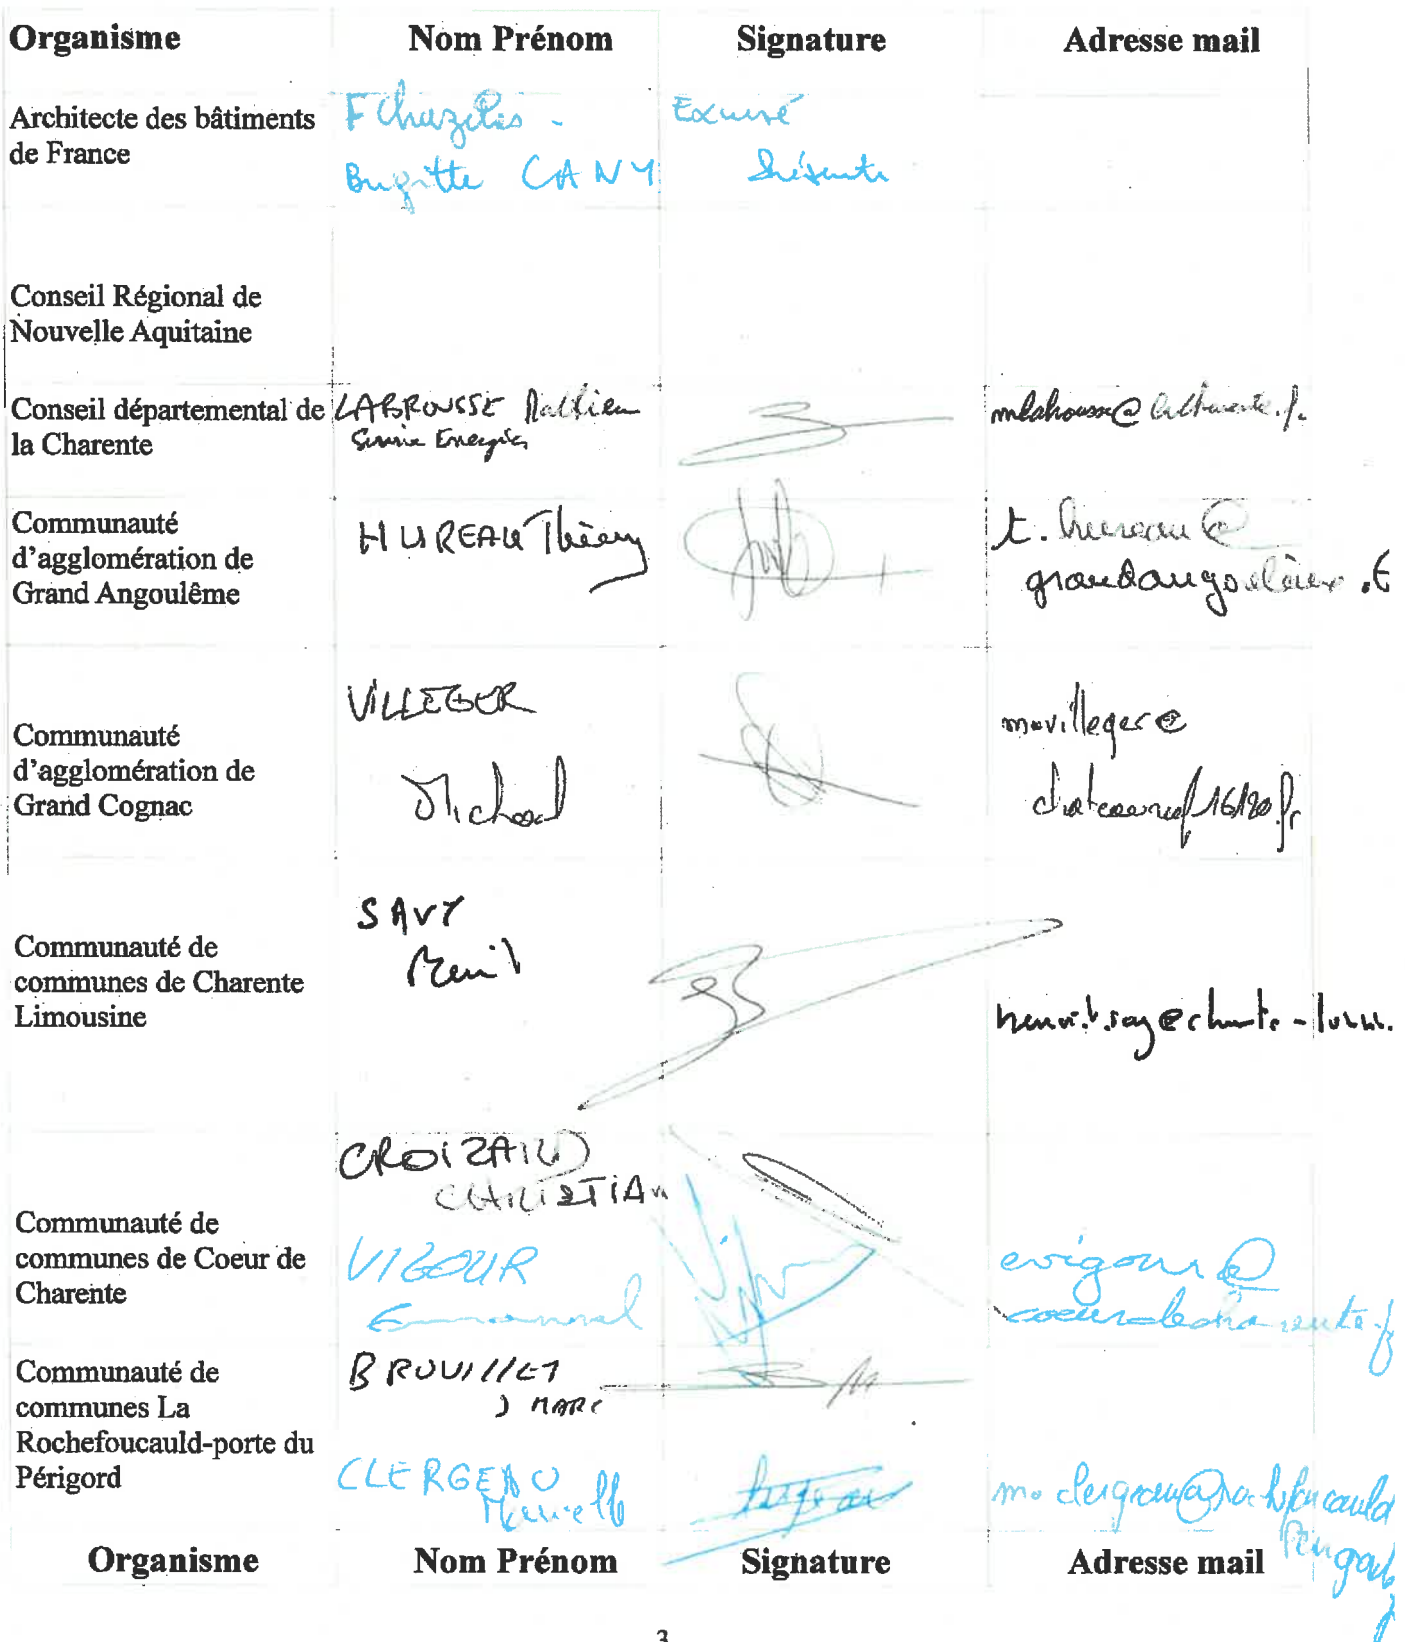 Organisme Nom Prénom Signature Adresse mail
Architecte des bâtiments
de France
Excusé
Brigitte CANY Présente
Conseil Régional de
Nouvelle Aquitaine
Conseil départemental de
la Charente
LABROUSSE Mathieu
Service Energies
Communauté
d'agglomération de
Grand Angoulême
HUREAU Thierry
t.hureau@
grandangouleme.fr
Communauté
d'agglomération de
Grand Cognac
VILLEGER
Michael
m.villeger@
chateauneuf16120.fr
Communauté de
communes de Charente
Limousine
SAVY
Communauté de
communes de Coeur de
Charente
CROIZARD
CHRISTIAN
VIGOUR
Emmanuel
evigour@
coeurdecharente.fr
Communauté de
communes La
Rochefoucauld-porte du
Périgord
BROUILLET
J MARC
CLERGEAU
Organisme Nom Prénom Signature Adresse mail
3